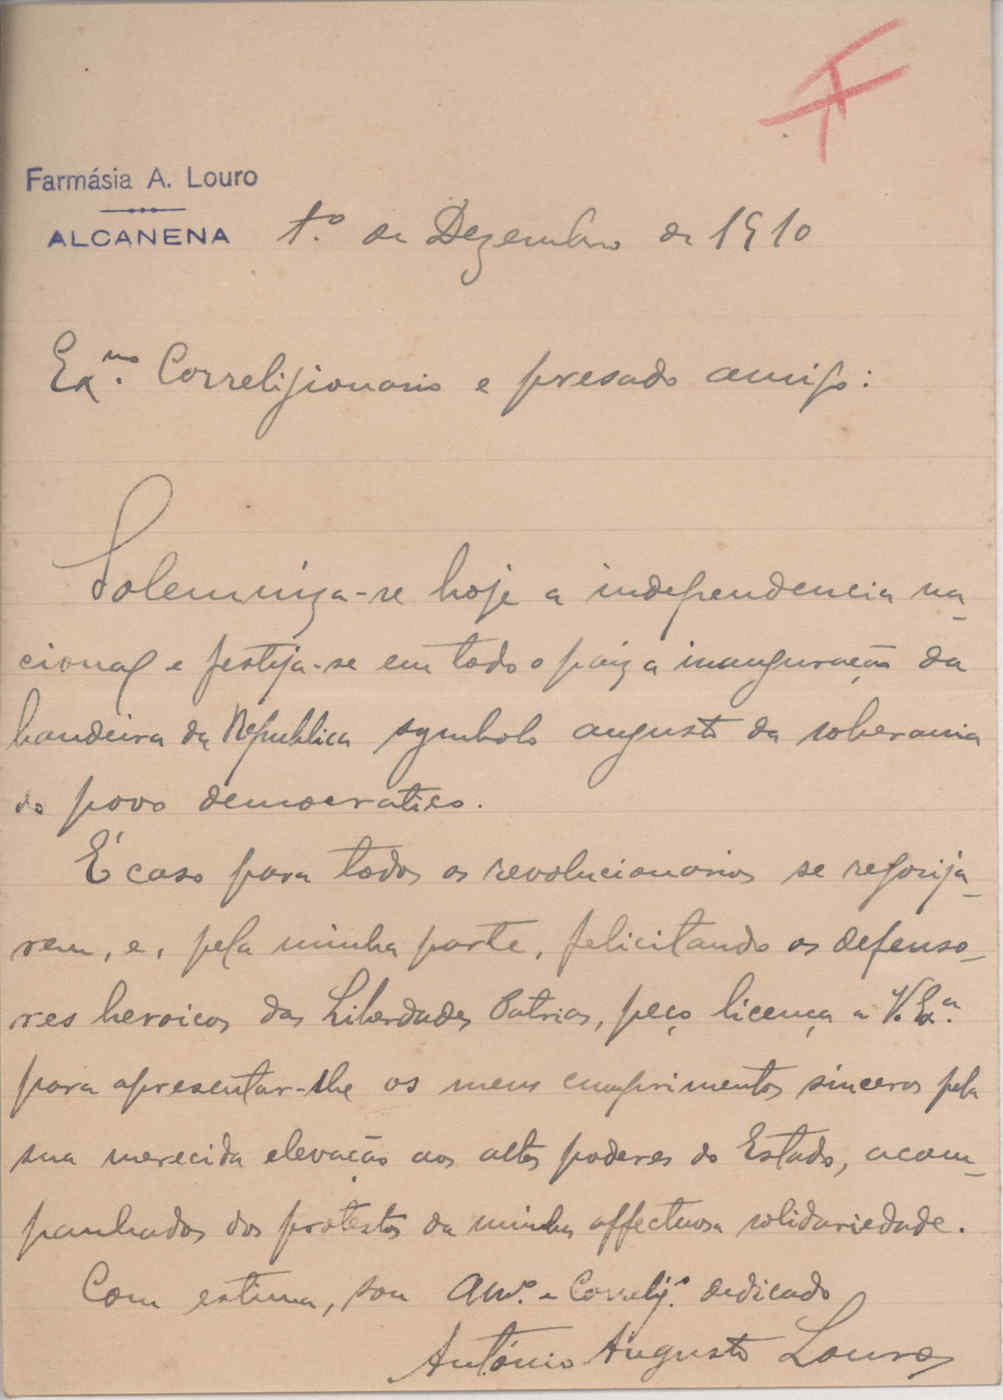 Farmásia A. Louro
ALCANENA
1.º de Dezembro de 1910
Ex.mo Correligionario e presado amigo:
Solemniza-se hoje a independencia na-
cional e festeja-se em todo o paiz a inauguração da
bandeira da Republica symbolo augusto da soberania
do povo democratico.
É caso para todos os revolucionarios se regosija-
rem, e, pela minha parte, felicitando os defenso-
res heroicos das Liberdades Patrias, peço licença a V. Ex.a
para apresentar-lhe os meus cumprimentos sinceros pela
sua merecida elevação aos altos poderes do Estado, acom-
panhados dos protestos da minha affectuosa solidariedade.
Com estima, sou Am.º e Correlig.º dedicado
António Augusto Louro